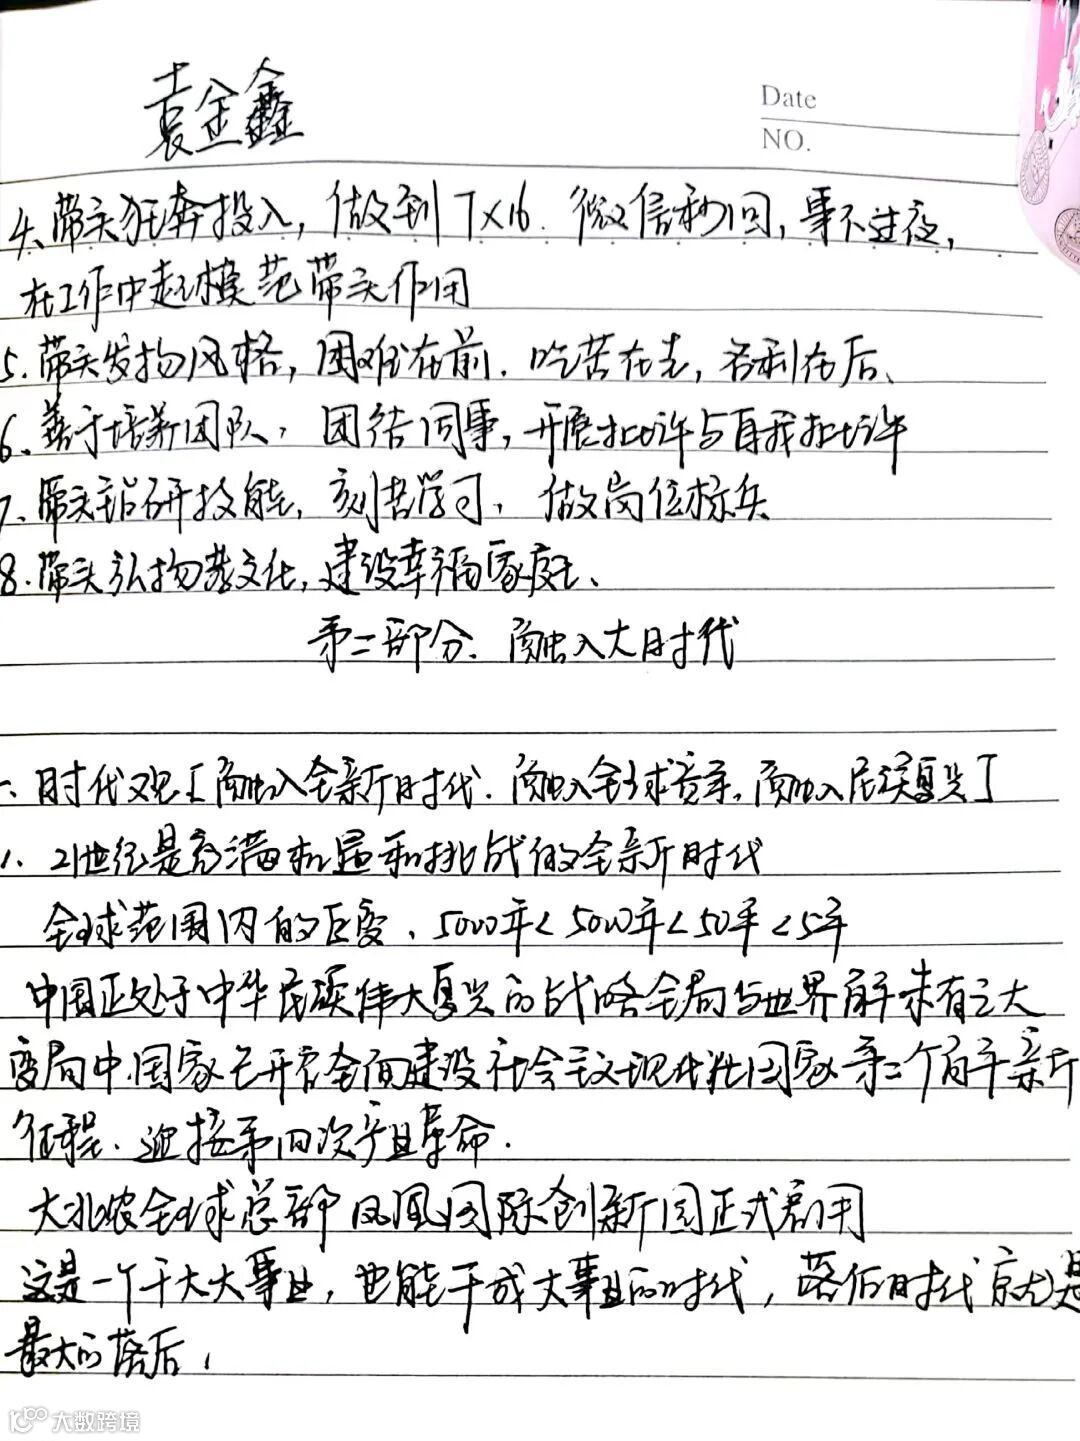 袁金鑫
Date
NO.
4、带头狂奔投入，做到7×16．微信秒回，事不过夜，
在工作中起模范带头作用
5.带头发扬风格，困难在前．吃苦在先，名利在后、
6、善于培养团队，团结同事，开展批评与自我批评
7、带头钻研技能，刻苦学习，做岗位标兵
8.带头弘扬孝文化，建设幸福家庭、
第二部分、融入大时代
一、时代观［融入全新时代．融入全球竞争，融入民族复兴］
1、21世纪是充满机遇和挑战的全新时代
全球范围内的巨变、5000年<500年<50年<5年
中国正处于中华民族伟大复兴的战略全局与世界前未有之大
变局中．国家已开启全面建设社会主义现代化国家第二个百年新
征程、迎接第四次产业革命．
大北农全球总部凤凰国际创新园正式启用
这是一个干大事业，也能干成大事业的时代，落伍时代就是
最大的落后，
大数跨境